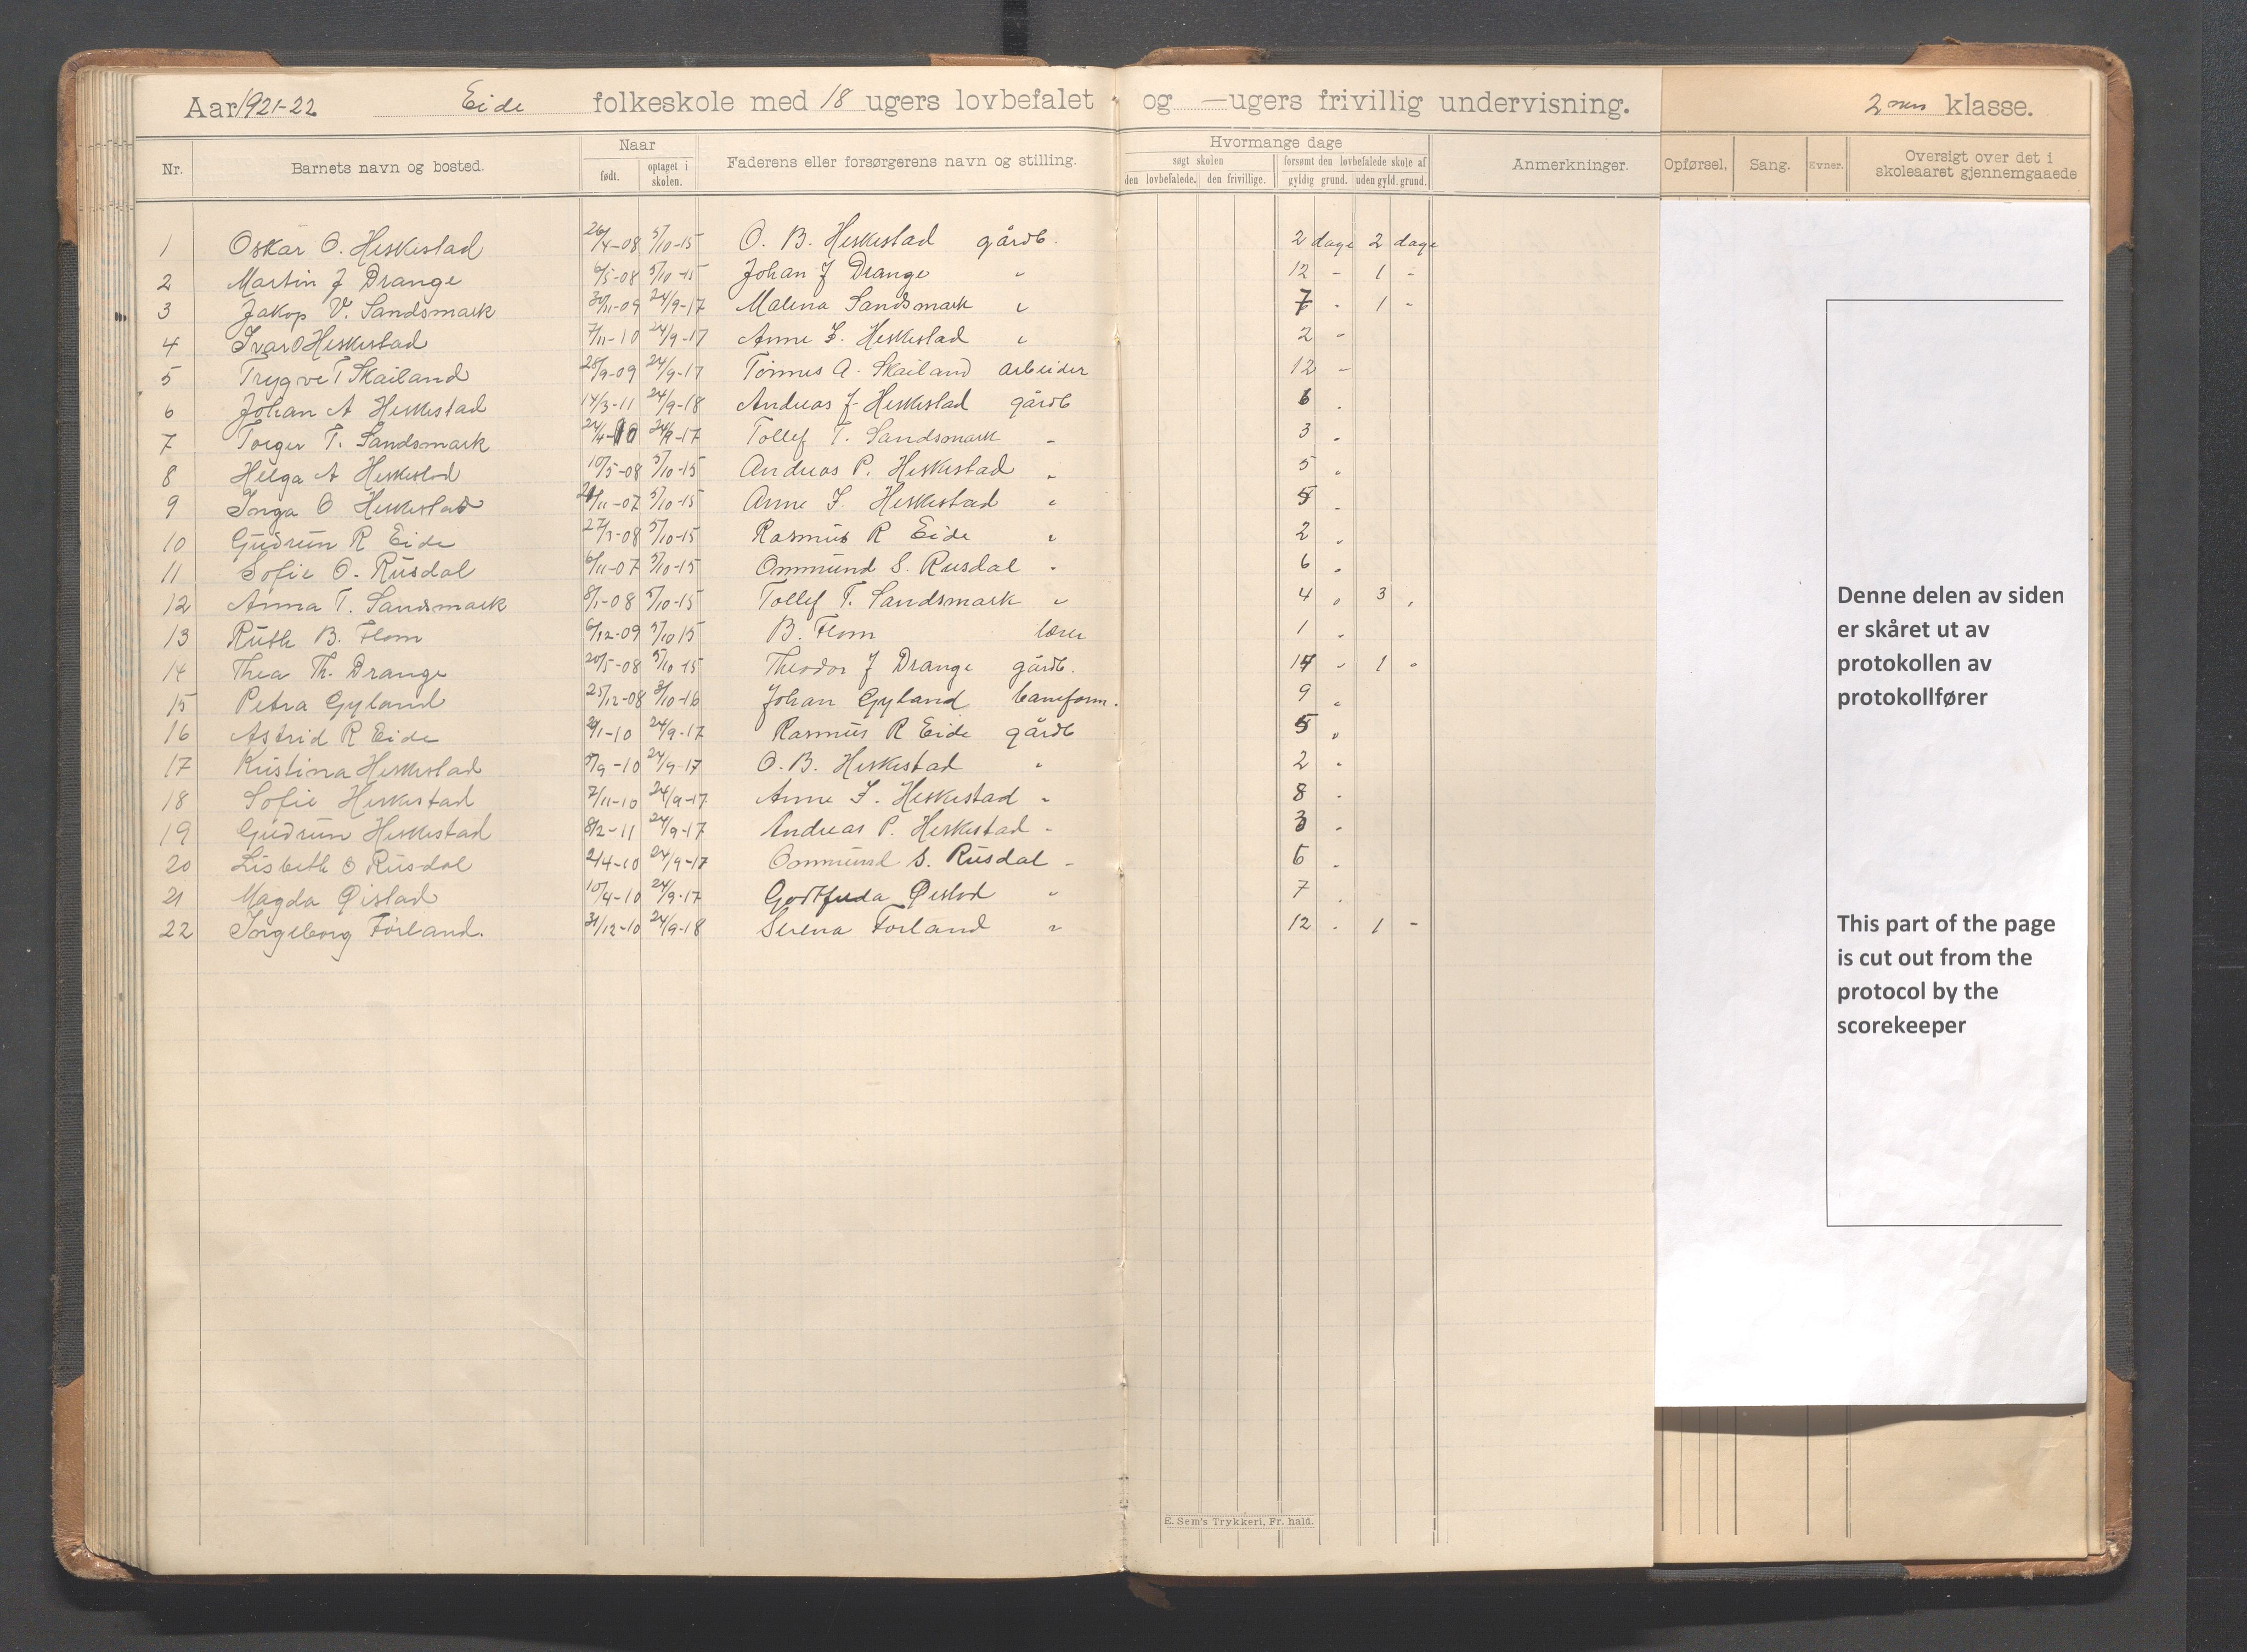 Aar 1921-22 Eide folkeskole med 18 ugers lovbefalet og — ugers frivillig undervisning. 2 klasse.
Nr. Barnets navn og bosted. Naar født. optaget i skolen. Faderens eller forsørgerens navn og stilling. Hvormange dage søgt skolen den lovbefalede. den frivillige. forsømt den lovbefalede skole af gyldig grund. uden gyld. grund. Anmerkninger. Opførsel. Sang. Evner. Oversigt over det i skoleaaret gjennemgaaede
1 Oskar O. Heskestad 26/4-08 5/10-15 O. B. Heskestad gårdb. 2 dage 2 dage
2 Martin J Drange 6/5-08 5/10-15 Johan J Drange " 12 - 1 -
3 Jakop V. Sandsmark 30/11-09 24/9-17 Malena Sandsmark " 7 - 1 -
4 Ivar O Heskestad 7/11-10 24/9-17 Anne F. Heskestad " 2 -
5 Trygve T Skailand 28/9-09 24/9-17 Tønnes A. Skailand arbeider 12 -
6 Johan A Heskestad 14/3-11 24/9-18 Andreas J. Heskestad gårdb 6 -
7 Torger T. Sandsmark 24/4-10 24/9-17 Tollef T. Sandsmark " 3 -
8 Helga A Heskestad 10/5-08 5/10-15 Andreas P. Heskestad " 5 -
9 Inga O Heskestad 21/11-07 5/10-15 Anne F. Heskestad " 5 -
10 Gudrun R Eide 5/10-15 Rasmus R Eide " 2 -
11 Sofie O. Rusdal 6/11-07 5/10-15 Ommund S. Rusdal " 6 -
12 Anna T. Sandsmark 8/1-08 5/10-15 Tollef T. Sandsmark " 4 - 3 -
13 Ruth B. Flom 6/12-09 5/10 15 B. Flom lærer 1 -
14 Thea Th. Drange 20/5-08 5/10-15 Theodor J Drange gårdb. 14 - 1 -
15 Petra Gyland 25/12-08 3/10-16 Johan Gyland baneform. 9 -
16 Astrid R Eide 24/9-17 Rasmus R Eide gårdb 5 -
17 Kristina Heskestad 5/9-10 24/9-17 O. B. Heskestad " 2 -
18 Sofie Heskestad 7/11-10 24/9-17 Anne F. Heskestad " 8 -
19 Gudrun Heskestad 8/2-11 24/9-17 Andreas P. Heskestad " 3 -
20 Lisbeth O Rusdal 2/4-10 24/9-17 Ommund S. Rusdal " 6 -
21 Magda Øistad 10/4-10 24/9-17 Godtfreda Øistad " 7 -
22 Ingeborg Førland. 31/12-10 24/9-18 Serena Førland " 12 - 1 -
Denne delen av siden
er skåret ut av
protokollen av
protokollfører
This part of the page
is cut out from the
protocol by the
scorekeeper
E. Sem's Trykkeri, Fr. hald.